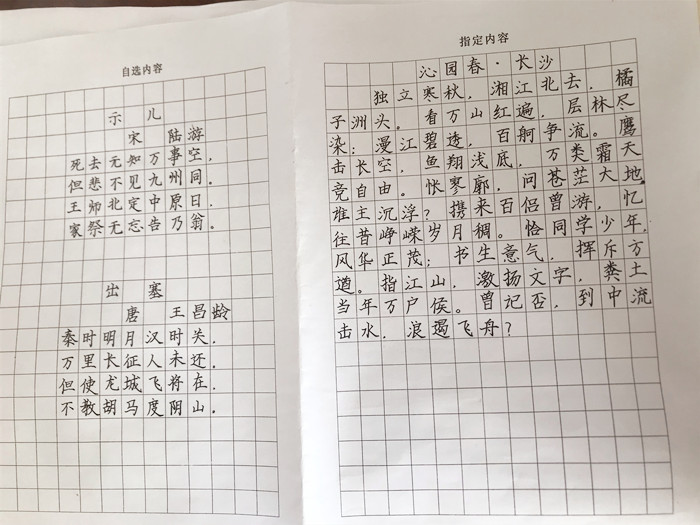 自选内容
示儿
宋 陆游
死去无知万事空，
但悲不见九州同。
王师北定中原日，
家祭无忘告乃翁。
出塞
唐 王昌龄
秦时明月汉时关，
万里长征人未还。
但使龙城飞将在，
不教胡马度阴山。
指定内容
沁园春·长沙
独立寒秋，湘江北去，橘
子洲头。看万山红遍，层林尽
染；漫江碧透，百舸争流。鹰
击长空，鱼翔浅底，万类霜天
竞自由。怅寥廓，问苍茫大地，
谁主沉浮？携来百侣曾游，忆
往昔峥嵘岁月稠。恰同学少年，
风华正茂；书生意气，挥斥方
遒。指江山，激扬文字，粪土
当年万户侯。曾记否，到中流
击水，浪遏飞舟？